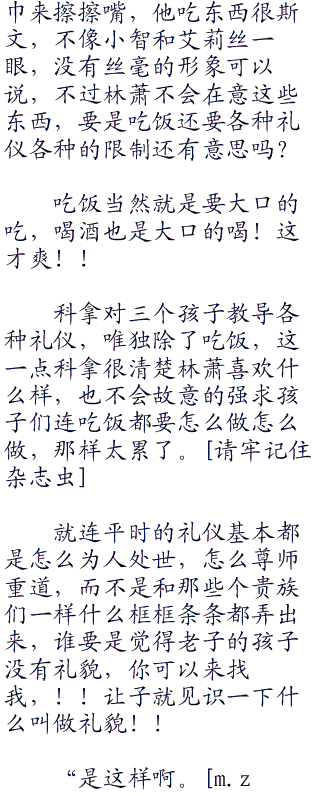 巾来擦擦嘴，他吃东西很斯
文，不像小智和艾莉丝一
眼，没有丝毫的形象可以
说，不过林萧不会在意这些
东西，要是吃饭还要各种礼
仪各种的限制还有意思吗？
吃饭当然就是要大口的
吃，喝酒也是大口的喝！这
才爽！！
科拿对三个孩子教导各
种礼仪，唯独除了吃饭，这
一点科拿很清楚林萧喜欢什
么样，也不会故意的强求孩
子们连吃饭都要怎么做怎么
做，那样太累了。[请牢记住
杂志虫]
就连平时的礼仪基本都
是怎么为人处世，怎么尊师
重道，而不是和那些个贵族
们一样什么框框条条都弄出
来，谁要是觉得老子的孩子
没有礼貌，你可以来找
我，！！让子就见识一下什
么叫做礼貌！！
“是这样啊。[m.z